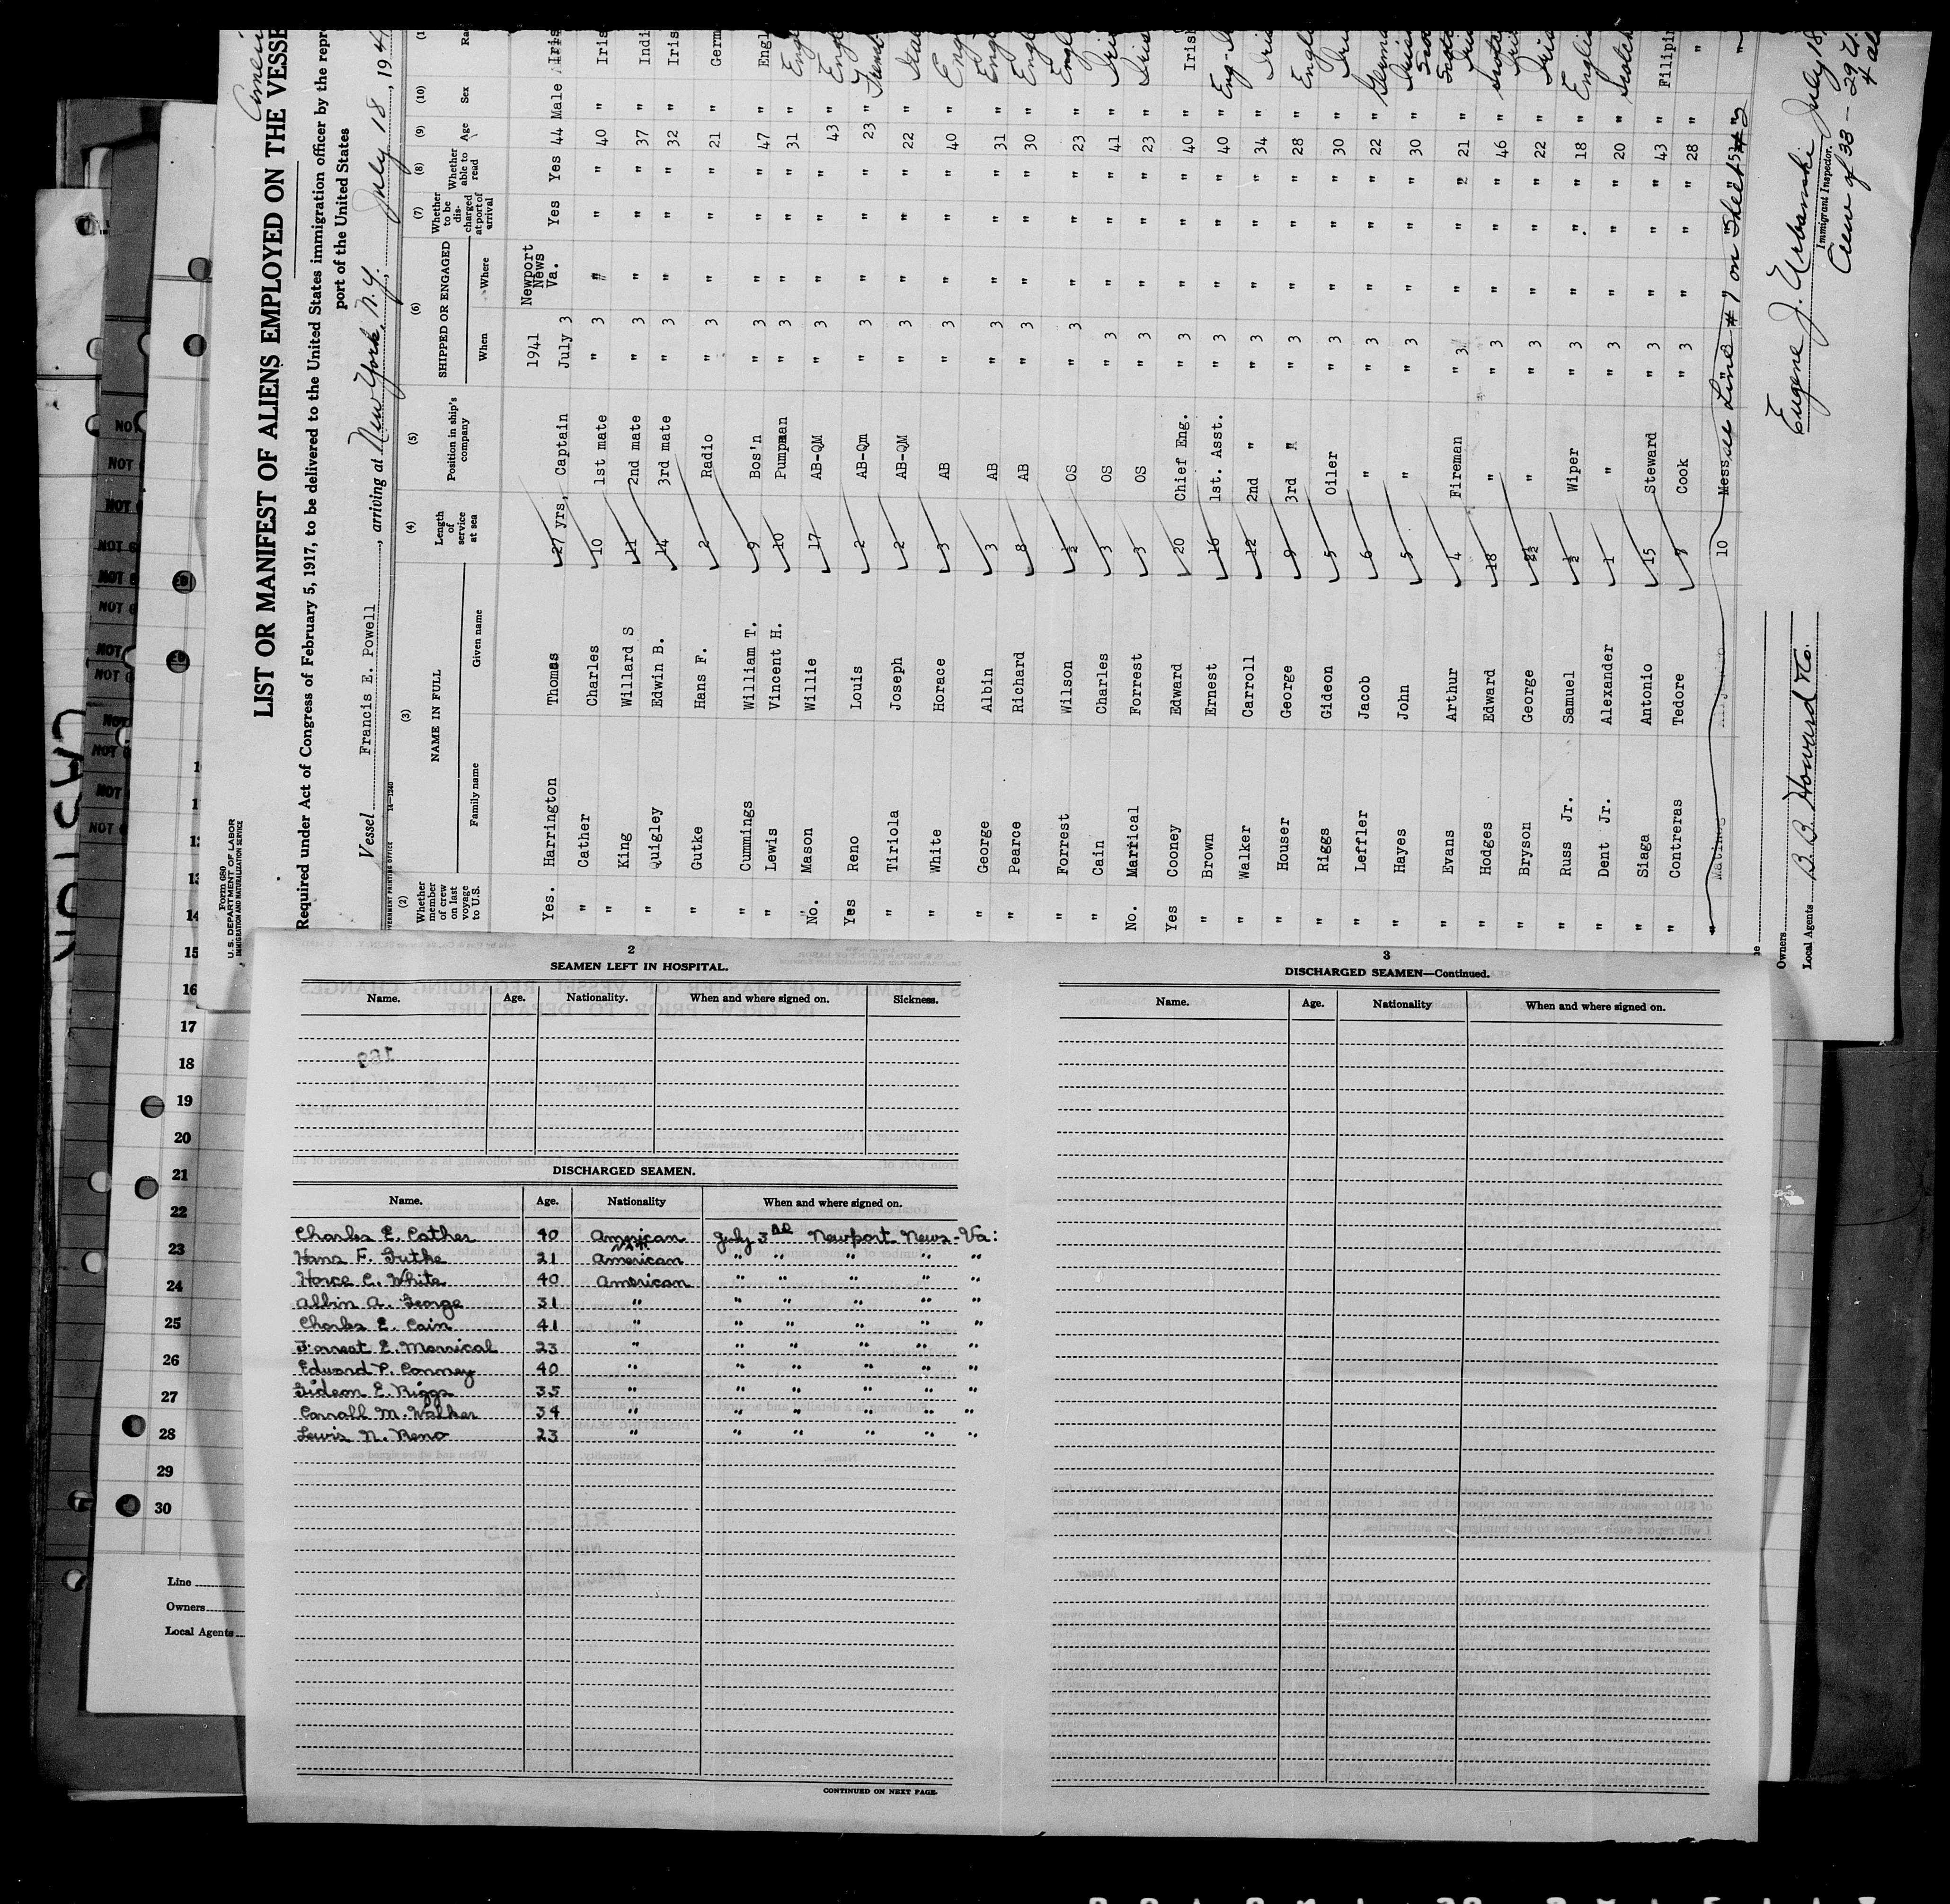 Form 680
U.S. DEPARTMENT OF LABOR
IMMIGRATION AND NATURALIZATION SERVICE
LIST OR MANIFEST OF ALIENS EMPLOYED ON THE VESSE
Required under Act of Congress of February 5, 1917, to be delivered to the United States immigration officer by the repre
port of the United States
Vessel Francis E. Powell, arriving at New York, N.Y. July 18, 194
(2) (3) (4) (5) (6) (7) (8) (9) (10)
Whether member of crew on last voyage to U.S. NAME IN FULL Length of service at sea Position in ship's company SHIPPED OR ENGAGED Whether to be discharged at port of arrival Whether able to read Age Sex Ra
Family name Given name When Where
1941 Newport News Va.
Yes. Harrington Thomas 27 yrs, Captain July 3 Yes Yes 44 Male Iris
" Cather Charles 10 1st mate " 3 " " " 40 " Iris
" King Willard S 11 2nd mate " 3 " " " 37 " Indi
" Quigley Edwin B. 14 3rd mate " 3 " " " 32 " Iris
" Gutke Hans F. 2 Radio " 3 " " " 21 " Germ
" Cummings William T. 9 Bos'n " 3 " " " 47 " Engl
" Lewis Vincent H. 10 Pumpman " 3 " " " 31 " Engl
No. Mason Willie 17 AB-QM " 3 " " " 43 " Engl
Yes Reno Louis 2 AB-Qm " 3 " " " 23 "
" Tiriola Joseph 2 AB-QM " 3 " " " 22 " Ital
" White Horace 3 AB " 3 " " " 40 " Eng
" George Albin 3 AB " 3 " " " 31 " Engl
" Pearce Richard 8 AB " 3 " " " 30 " Engl
" Forrest Wilson ½ OS " 3 " " " 23 " Engl
" Cain Charles 3 OS " 3 " " " 41 " Iris
No. Marrical Forrest 3 OS " 3 " " " 23 " Iris
Yes Cooney Edward 20 Chief Eng. " 3 " " " 40 " Irish
" Brown Ernest 16 1st. Asst. " 3 " " " 40 " Eng-I
" Walker Carroll 12 2nd " " 3 " " " 34 " Iris
" Houser George 9 3rd " " 3 " " " 28 " Engl
" Riggs Gideon 5 Oiler " 3 " " " 30 " Iris
" Leffler Jacob 6 " " 3 " " " 22 " Germa
" Hayes John 5 " " 3 " " " 30 "
" Evans Arthur 4 Fireman " 3 " " " 21 "
" Hodges Edward 18 " " 3 " " " 46 "
" Bryson George 2½ " " 3 " " " 22 "
" Russ Jr. Samuel ½ Wiper " 3 " " " 18 " Englis
" Dent Jr. Alexander 1 " " 3 " " " 20 " Scotch
" Siaga Antonio 15 Steward " 3 " " " 43 " Filipin
" Contreras Tedore 7 Cook " 3 " " " 28 " "
" Matinos 10 Mess see Line #1 on Sheet #2
Owners
Local Agents B. B. Howard &Co.
Eugene J. Urbanski July 18,
Immigrant Inspector.
Crew of 33 - 29
NOT
10
11
12
13
14
15
16
17
18
19
20
21
22
23
24
25
26
27
28
29
30
Line
Owners
Local Agents
2
SEAMEN LEFT IN HOSPITAL.
Name. Age. Nationality. When and where signed on. Sickness.
DISCHARGED SEAMEN.
Name. Age. Nationality When and where signed on.
Charles E. Cather 40 American July 3RD Newport News-Va:
Hans F. Gutke 21 American " " " " "
Horce C. White 40 American " " " " "
Albin A. George 31 " " " " " "
Charles E. Cain 41 " " " " " "
Forrest E. Marrical 23 " " " " " "
Edward P. Conney 40 " " " " " "
Gideon E. Riggs 35 " " " " " "
Carroll M. Walker 34 " " " " " "
Lewis N. Reno 23 " " " " " "
CONTINUED ON NEXT PAGE.
3
DISCHARGED SEAMEN—Continued.
Name. Age. Nationality When and where signed on.